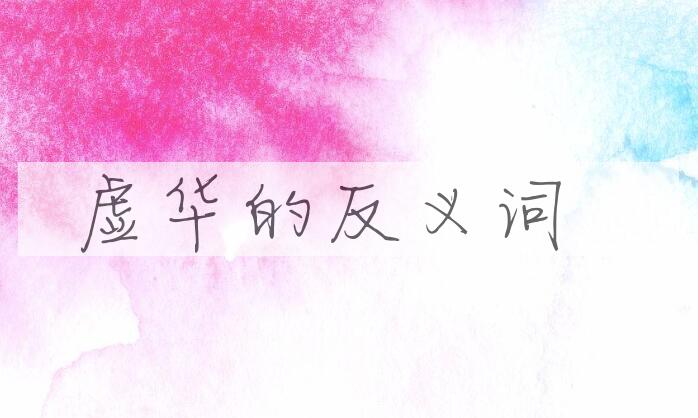 虚华的反义词